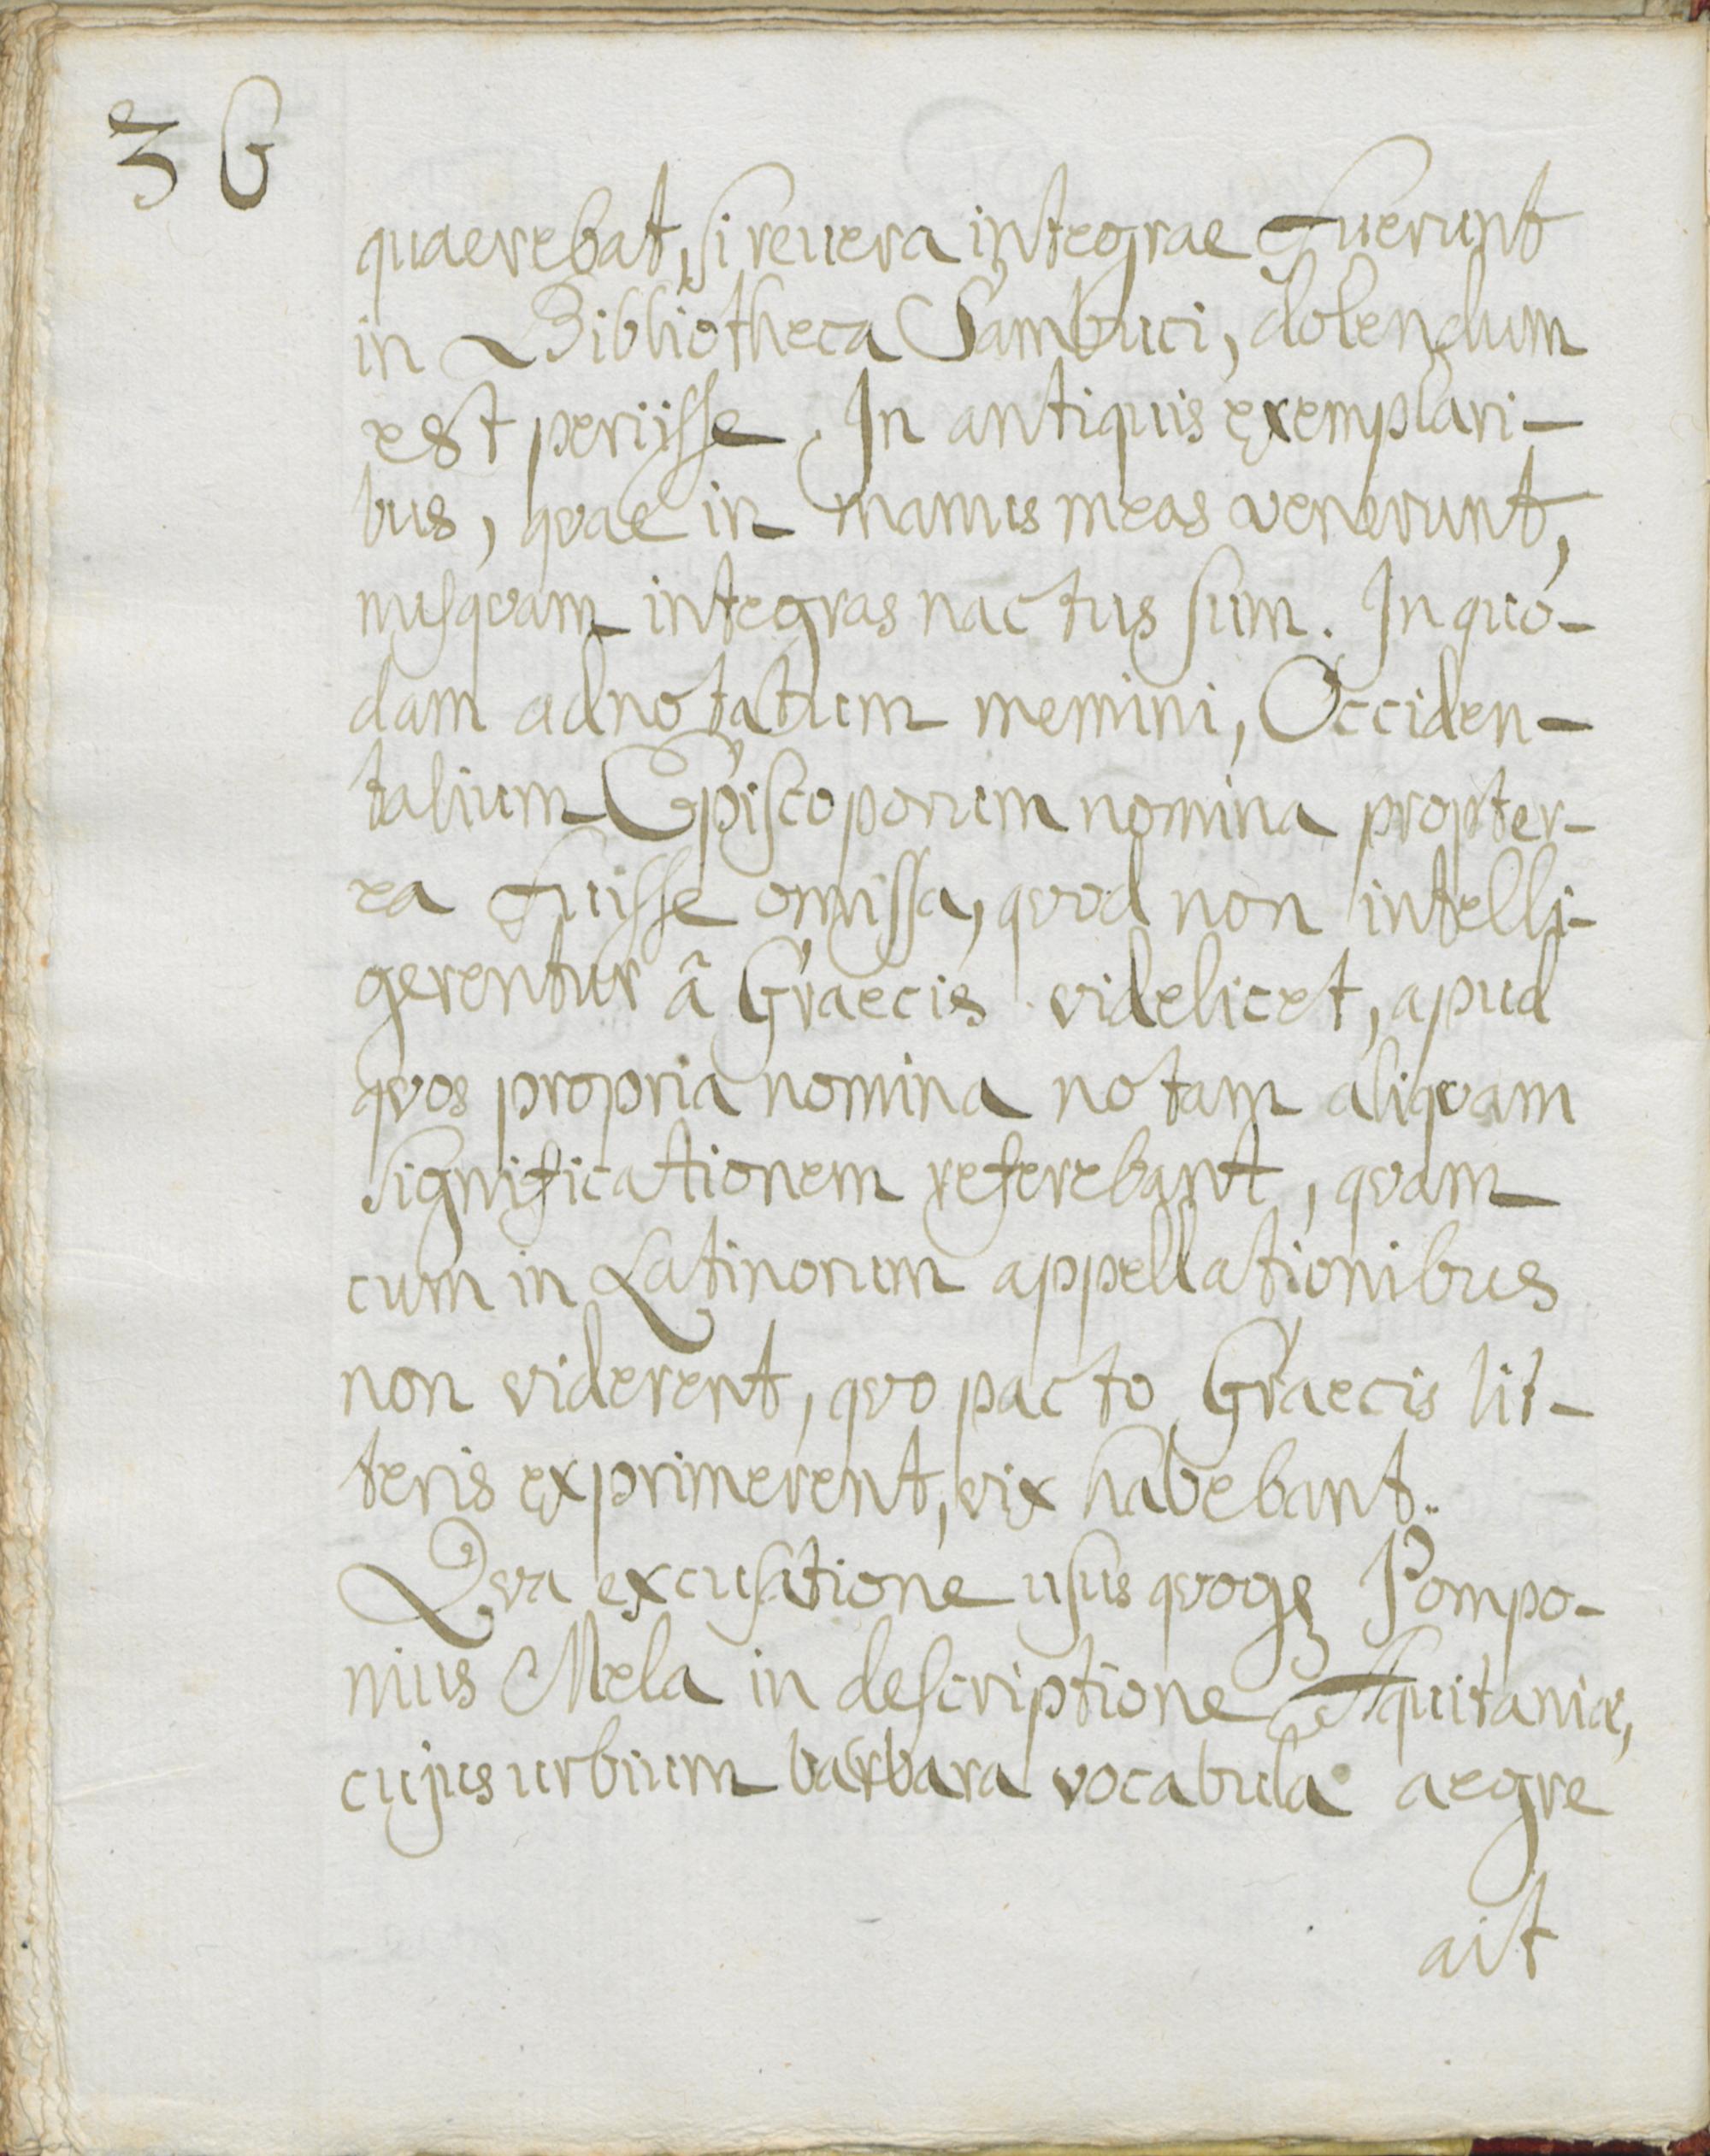 36
quaerebat, si reuera integrae fuerunt
in Bibliotheca Sambuci, dolendum
est periisse. In antiquis exemplari-
bus, qvae in manus meas venerunt,
nusqvam integras nactus sum. In quo-
dam adnotatum memini, Occiden-
talium Episcoporum nomina propter-
ea fuisse omissa, qvod non intelli-
gerentur ã Graecis videlicet, apud
qvos propria nomina notam aliqvam
significationem referebant, qvam
cum in Latinorum appellationibus
non viderent, qvo pacto Graecis lit-
teris exprimerent, vix habebant.
Qva excusatione usus qvoqꝫ Pompo-
nius Mela in descriptione Aquitaniae,
cujus urbium barbara vocabula aegre
ait